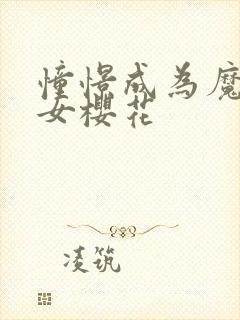 憧憬成為魔
女櫻花
凌筑